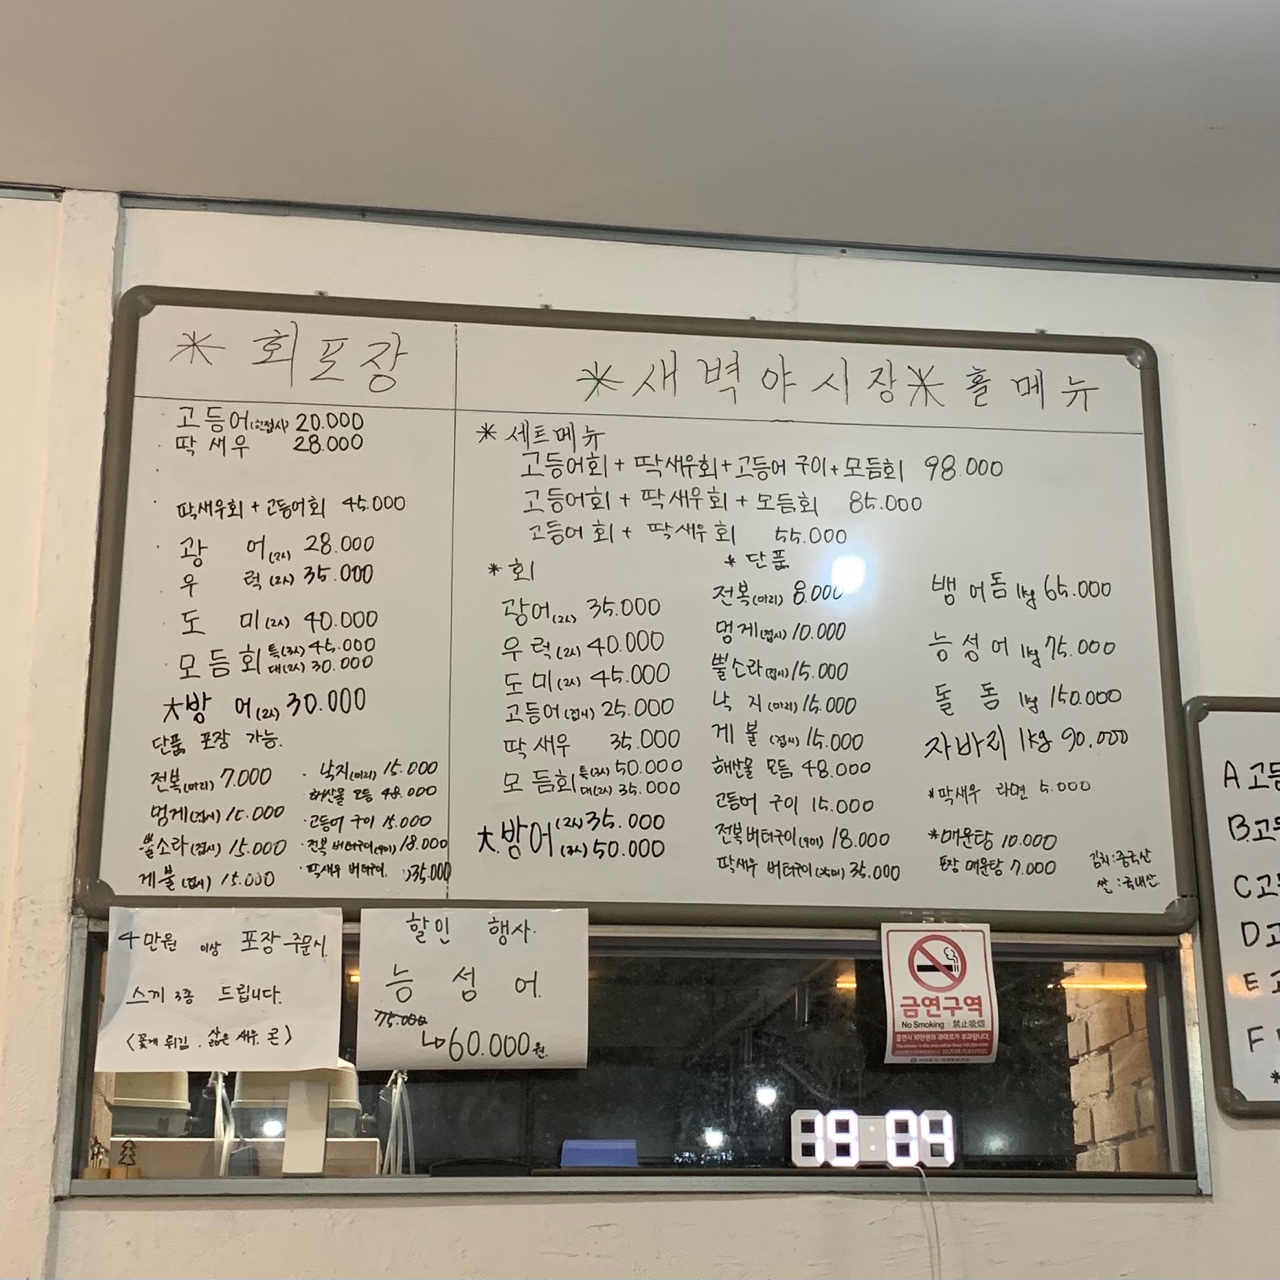 * 회포장
고등어(한접시) 20.000
딱새우 28.000
딱새우회 + 고등어회 45.000
광 어(2人) 28.000
우 럭(2人) 35.000
도 미(2人) 40.000
모듬회 특(3人) 45.000
대(2人) 30.000
大방 어(2人) 30.000
단품 포장 가능.
전복(마리) 7.000
멍게(접시) 15.000
뿔소라(접시) 15.000
게불(접시) 15.000
· 낙지(마리) 15.000
· 해산물 모듬 48.000
· 고등어 구이 15.000
· 전복 버터구이(4미) 18.000
· 딱새우 버터구이 35.000
*새벽야시장* 홀메뉴
* 세트메뉴
고등어회 + 딱새우회 + 고등어 구이 + 모듬회 98.000
고등어회 + 딱새우회 + 모듬회 85.000
고등어회 + 딱새우회 55.000
* 회
광어(2人) 35.000
우럭(2人) 40.000
도미(2人) 45.000
고등어(접시) 25.000
딱새우 35.000
모듬회 특(3人) 50.000
대(2人) 35.000
大.방어(2人) 35.000
(3人) 50.000
* 단품
전복(마리) 8.000
멍게(접시) 10.000
뿔소라(접시) 15.000
낙 지(마리) 15.000
게 불(접시) 15.000
해산물 모듬 48.000
고등어 구이 15.000
전복버터구이(4미) 18.000
딱새우 버터구이 35.000
뱅어돔 1kg 65.000
능성어 1kg 75.000
돌 돔 1kg 150.000
자바리 1kg 90.000
*딱새우 라면 5.000
*매운탕 10.000
포장 매운탕 7.000
김치:중국산
쌀:국내산
4만원 이상 포장 주문시.
스끼 3종 드립니다.
<꽃게 튀김. 삶은 새우. 콘>
할인 행사.
능 섬 어.
75.000
↳60.000원.
금연구역
No Smoking · 禁止吸烟
19:04
A 고등
B 고등
C 고등
D 고
E 고
F
*